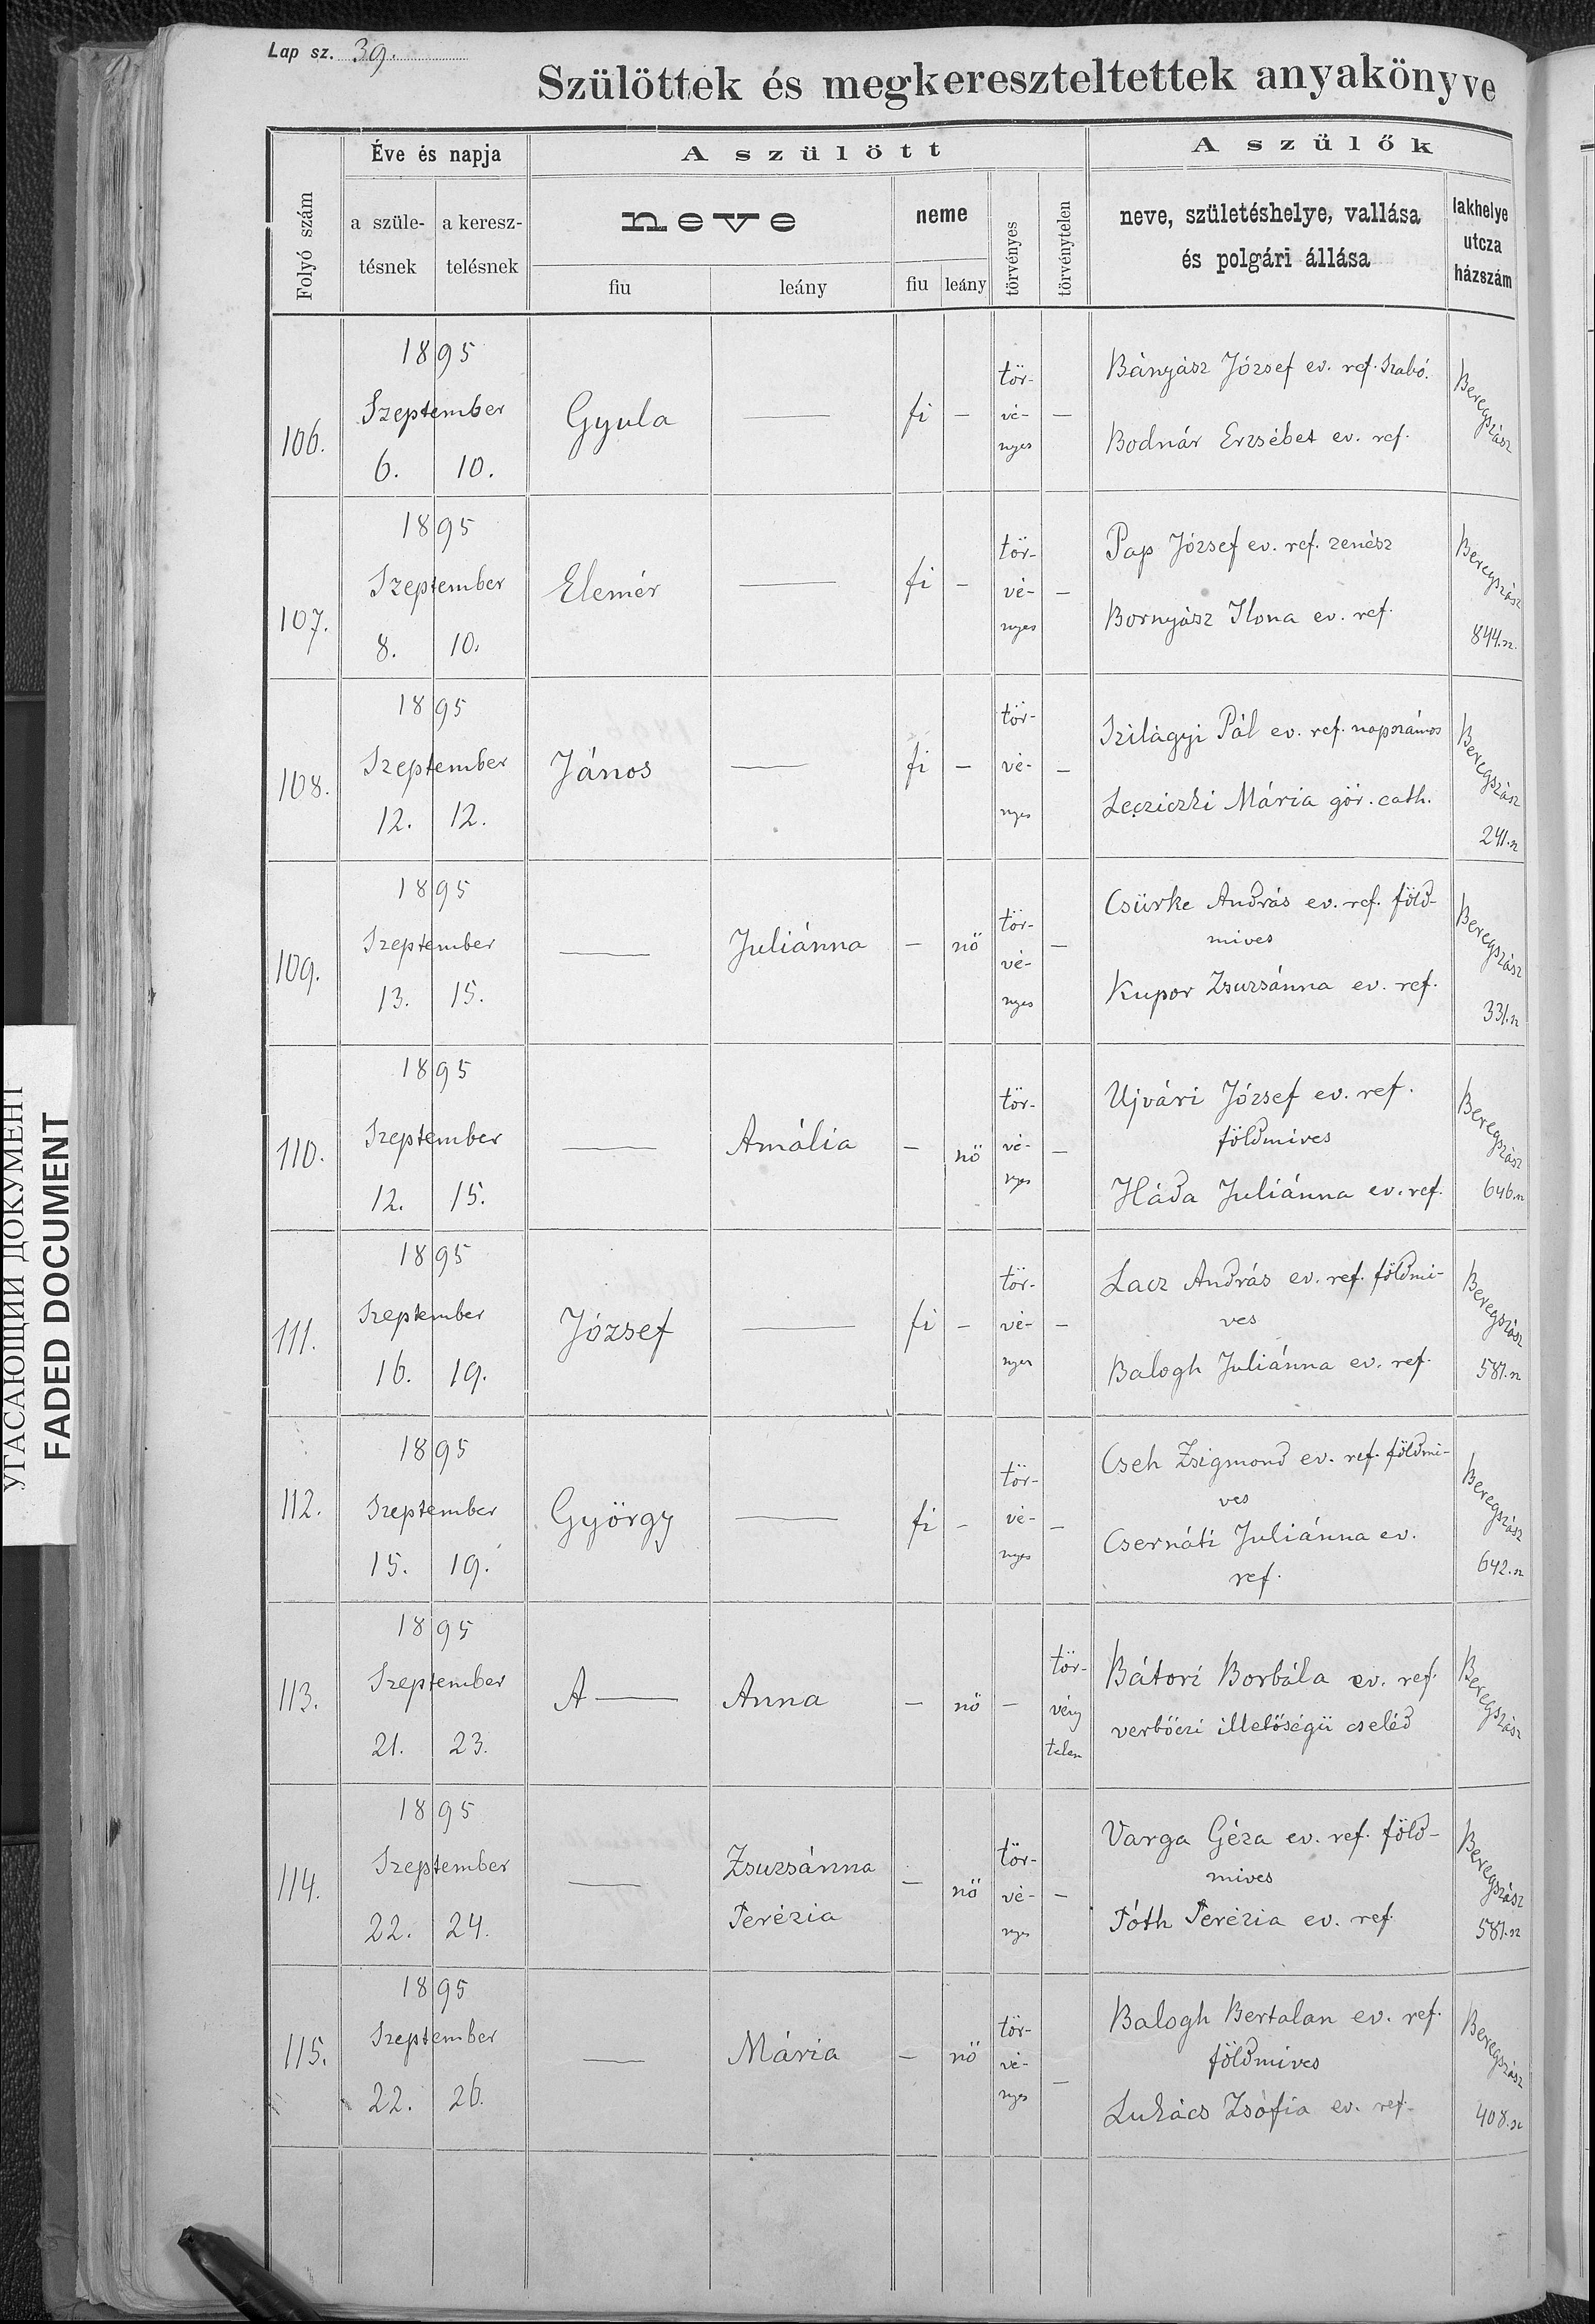 Lap sz. 39.
Szülöttek és megkereszteltettek anyakönyve
Folyó szám
Éve és napja
a szüle-
tésnek
a keresz-
telésnek
A szülött
neve
fiu
leány
neme
fiu
leány
törvényes
törvénytelen
A szülők
neve, születéshelye, vallása
és polgári állása
lakhelye
utcza
házszám
106.
1895
Szeptember
6. 10.
Gyula
—
fi —
tör-
vé-
nyes
—
Bányász József ev. ref. szabó.
Bodnár Erzsébet ev. ref.
Beregszász
107.
1895
Szeptember
8. 10.
Elemér
—
fi —
tör-
vé-
nyes
—
Pap József ev. ref. zenész
Bornyász Ilona ev. ref.
Beregszász
844.sz.
108.
1895
Szeptember
12. 12.
János
—
fi —
tör-
vé-
nyes
—
Szilágyi Pál ev. ref. napszámos
Lecziczki Mária gör. cath.
Beregszász
241.sz
109.
1895
Szeptember
13. 15.
—
Juliánna
— nő
tör-
vé-
nyes
—
Csürke András ev. ref. föld-
mives
Kupor Zsuzsánna ev. ref.
Beregszász
331.sz
110.
1895
Szeptember
12. 15.
—
Amália
— nő
tör-
vé-
nyes
—
Ujvári József ev. ref.
földmives
Háda Juliánna ev. ref.
Beregszász
646.sz
111.
1895
Szeptember
16. 19.
József
—
fi —
tör-
vé-
nyes
—
Lacz András ev. ref. földmi-
ves
Balogh Juliánna ev. ref.
Beregszász
581.sz
112.
1895
Szeptember
15. 19.
György
—
fi —
tör-
vé-
nyes
—
Cseh Zsigmond ev. ref. földmi-
ves
Csernáti Juliánna ev.
ref.
Beregszász
642.sz
113.
1895
Szeptember
21. 23.
A —
Anna
— nő —
tör-
vény
telen
Bátori Borbála ev. ref.
verbőczi illetőségü cseléd
Beregszász
114.
1895
Szeptember
22. 24.
—
Zsuzsánna
Terézia
— nő
tör-
vé-
nyes
—
Varga Géza ev. ref. föld-
mives
Tóth Terézia ev. ref.
Beregszász
581.sz
115.
1895
Szeptember
22. 26.
—
Mária
— nő
tör-
vé-
nyes
—
Balogh Bertalan ev. ref.
földmives
Lukács Zsófia ev. ref.
Beregszász
408.sz
УГАСАЮЩИЙ ДОКУМЕНТ
FADED DOCUMENT